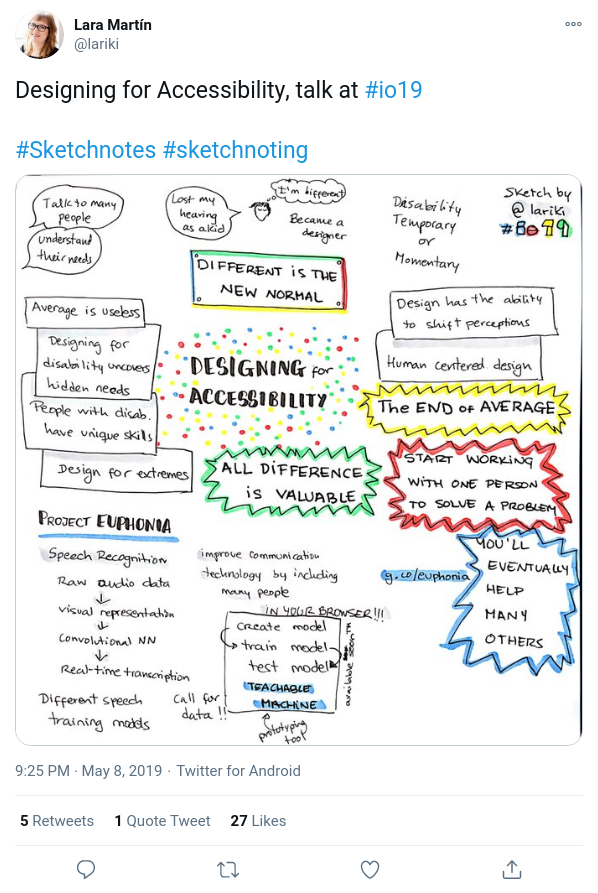 Lara Martín
@lariki
Designing for Accessibility, talk at #io19
#Sketchnotes #sketchnoting
Talk to many
people
understand
their needs
Lost my
hearing
as a kid
I'm different
Became a
designer
Disability
Temporary
or
Momentary
Sketch by
@lariki
#8e99
DIFFERENT is THE
NEW NORMAL
Average is useless
Designing for
disability uncovers
hidden needs
People with disab.
have unique skils
Design for extremes
DESIGNING for
ACCESSIBILITY
Design has the ability
to shift perceptions
Human centered design
The END of AVERAGE
ALL DIFFERENCE
is VALUABLE
START WORKING
WITH ONE PERSON
TO SOLVE A PROBLEM
YOU'LL
EVENTUALLY
HELP
MANY
OTHERS
PROJECT EUPHONIA
Speech Recognition
Raw audio data
visual representation
Convolutional NN
Real-time transcription
Different speech
training models
improve communication
technology by including
many people
g.co/euphonia
IN YOUR BROWSER!!!
Create model
train model
test model
TEACHABLE
MACHINE
Call for
data !!
prototyping
tool
9:25 PM · May 8, 2019 · Twitter for Android
5 Retweets 1 Quote Tweet 27 Likes